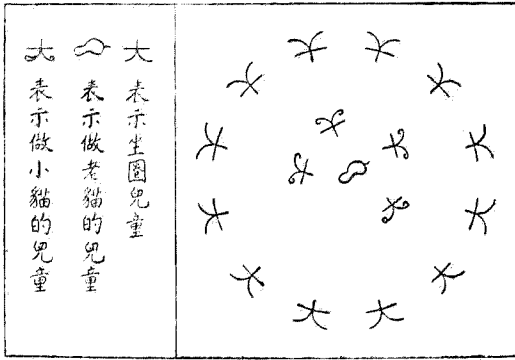 大 表示坐圈兒童
表示做老貓的兒童
表示做小貓的兒童